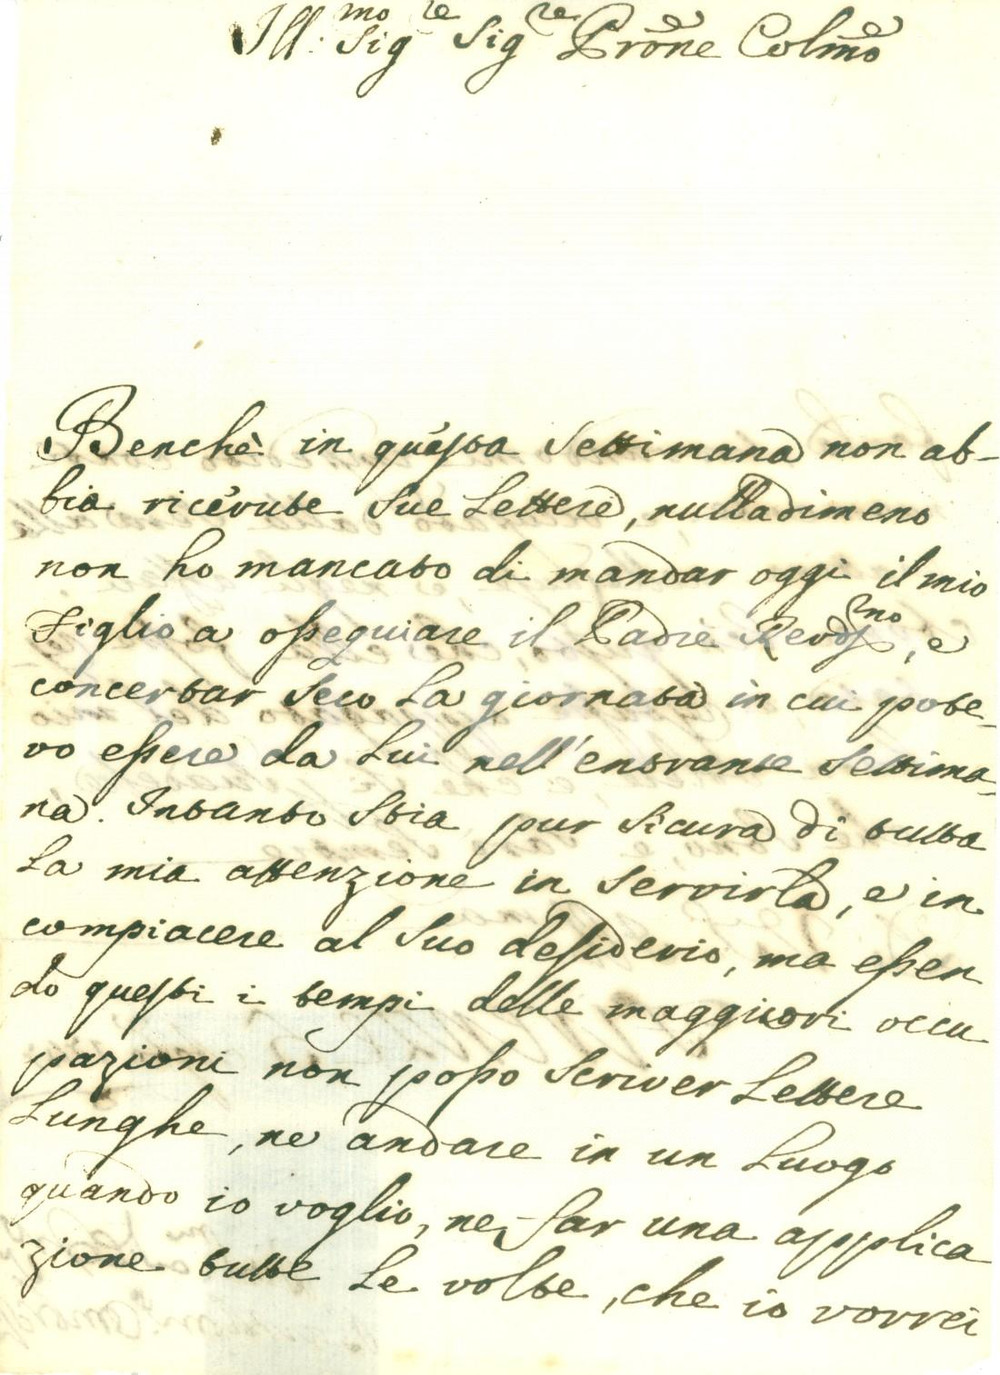 Ill:mo Sigre Sigre Prōne Colmō
Benchè in questa Settimana non ab-
bia ricevute Sue Lettere, nulladimeno
non ho mancato di mandar oggi il mio
Figlio a ossequiare il Padre Revdsmo, e
concertar Seco La giornata in cui pote-
vo essere da Lui nell'entrante Settima-
na. Intanto Stia pur Sicura di tutta
La mia attenzione in Servirla, e in
compiacere al Suo desiderio, ma essen
do questi i tempi delle maggiori occu
pazioni non posso Scriver Lettere
Lunghe, ne andare in un Luogo
quando io voglio, ne far una applica
zione tutte Le volte, che io vorrei